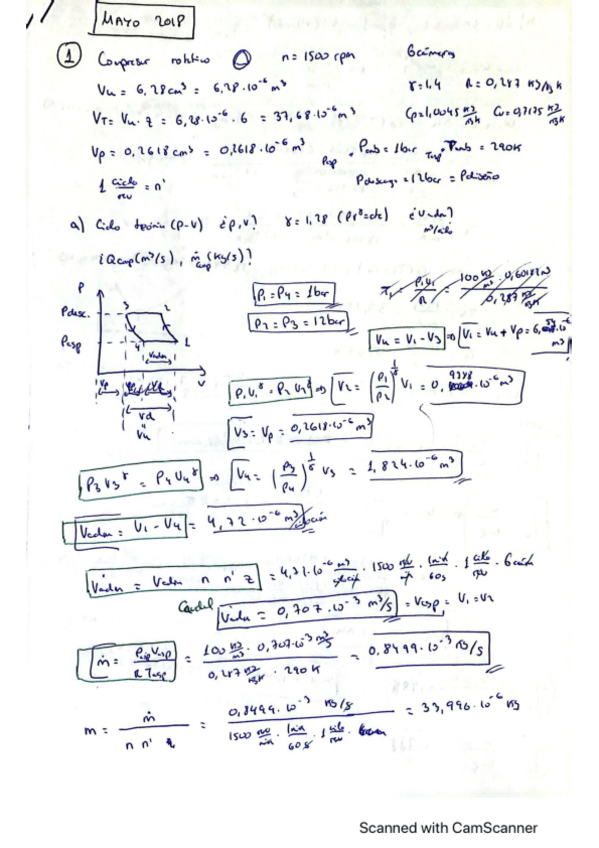 MAYO 2018
① Compresor rotativo n = 1500 rpm 6 cámaras
Vu = 6,28 cm³ = 6,28·10⁻⁶ m³ γ = 1,4 R = 0,287 KJ/KgK
VT = Vu · z = 6,28·10⁻⁶ · 6 = 37,68·10⁻⁶ m³ Cp = 1,0045 KJ/KgK Cv = 0,7175 KJ/KgK
Vp = 0,2618 cm³ = 0,2618·10⁻⁶ m³ Pasp = Pamb = 1 bar Tasp = Tamb = 290K
1 ciclo/rev = n' Pdescarg. = 12 bar = Pdiseño
a) Ciclo teórico (P-V) ¿P,V? γ = 1,28 (PVᵞ = cte) ¿Vadm? m³/ciclo
¿Qasp (m³/s), ṁasp (Kg/s)?
P
Pdesc. 3 2
Pasp 4 1
Vadm
V
Vp
Vd
"
Vu
P1 = P4 = 1 bar
P2 = P3 = 12 bar
Vu = V1 - V3 ⇒ V1 = Vu + Vp = 6,54·10⁻⁶ m³
P1V1ᵞ = P2V2ᵞ ⇒ V2 = (P1/P2)^(1/γ) V1 = 0,9388·10⁻⁶ m³
V3 = Vp = 0,2618·10⁻⁶ m³
P3V3ᵞ = P4V4ᵞ ⇒ V4 = (P3/P4)^(1/γ) V3 = 1,824·10⁻⁶ m³
Vadm = V1 - V4 = 4,72·10⁻⁶ m³
V̇adm = Vadm n n' z = 4,71·10⁻⁶ m³ · 1500 rev/min · 1min/60s · 1 ciclo/rev · 6 cám
Caudal V̇adm = 0,707·10⁻³ m³/s = V̇asp = V1 = V2
ṁ = Pasp V̇asp / R Tasp = 100 KJ/m³ · 0,707·10⁻³ m³/s / 0,287 KJ/KgK · 290K = 0,8499·10⁻³ Kg/s
m = ṁ / n n' z = 0,8499·10⁻³ Kg/s / 1500 rev/min · 1min/60s · 1 ciclo/rev · = 33,996·10⁻⁶ Kg
Scanned with CamScanner